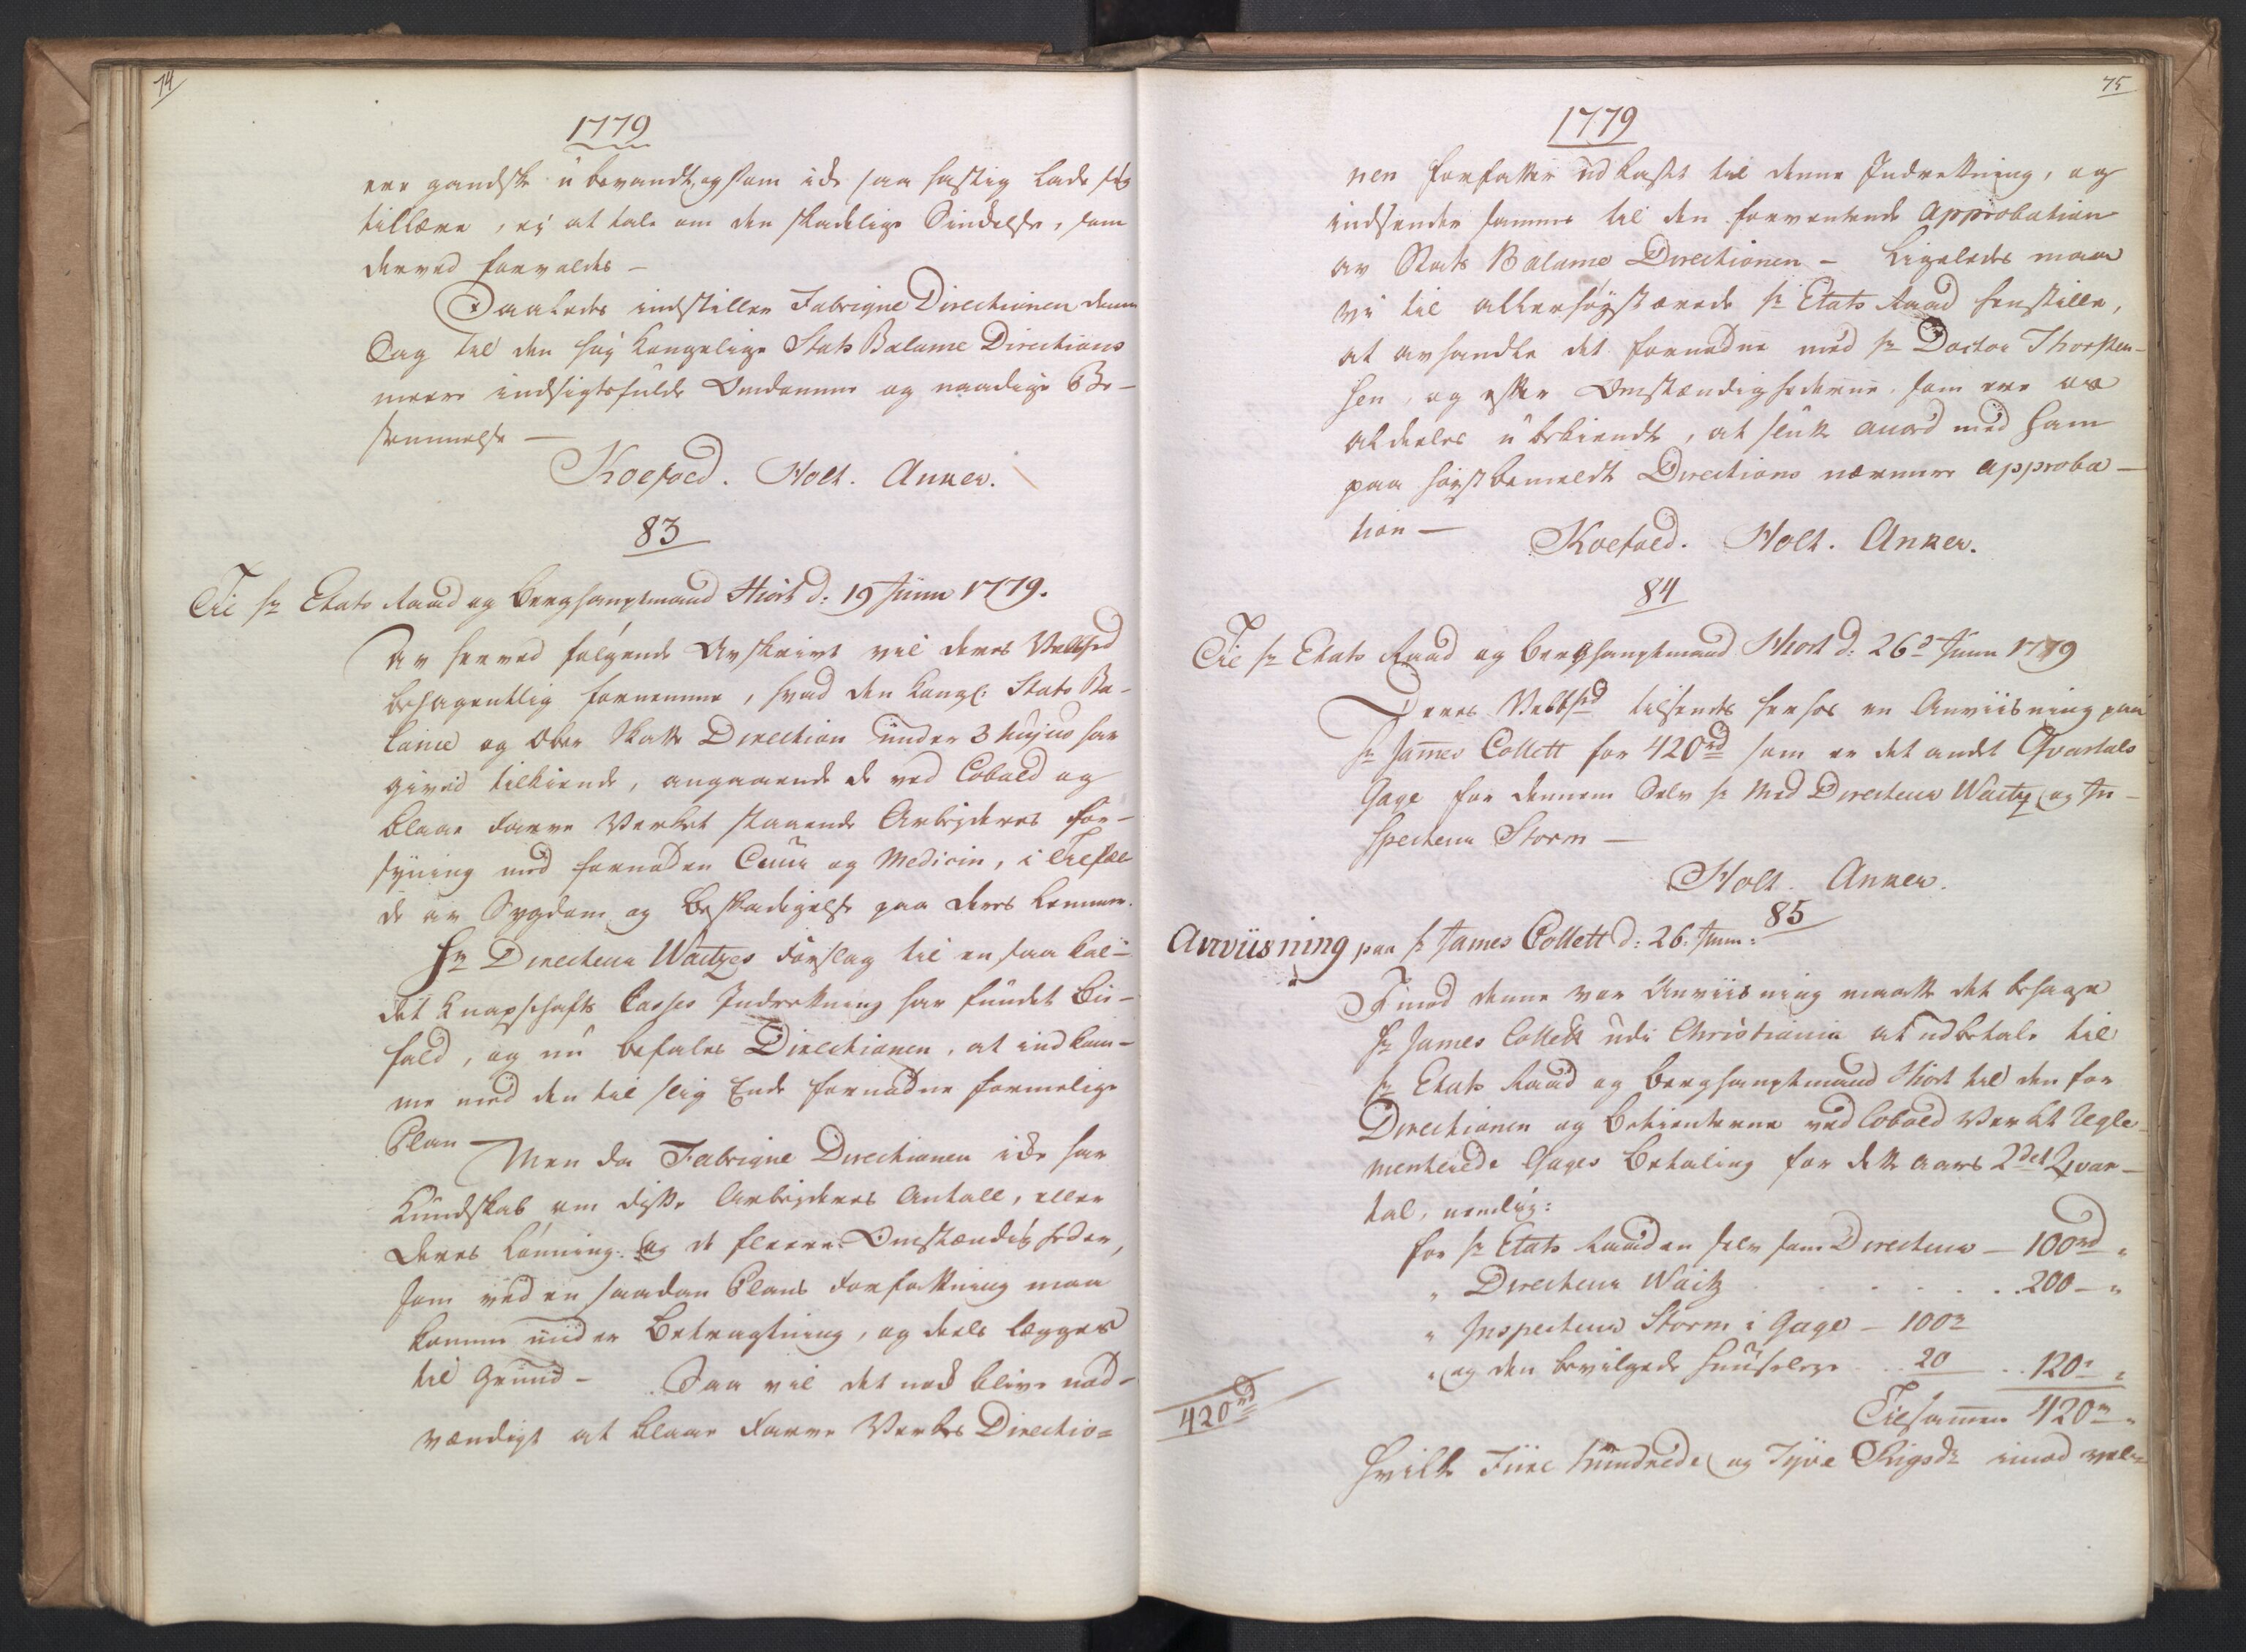 74
1779
ere gandske ubevandt, og som icke saa hastig lade sig
tillære, ej at tale om den skadelige Sindelse, som
derved forvoldes —
Saaledes indstiller Fabrique Directionen denne
Sag til den høj Kongelige Stats Balance Directions
meere indsigtsfulde Omdømme og naadige Be-
stemmelse —
Koefoed. Holt. Anker.
83
Til Hr Etats Raad og Berghauptmand Hiort d: 19 Juni 1779.
Av herved følgende Avskrivt vil deres Velbhed
behagentlig fornemme, hvad den Kongl: Stats Ba-
lance og Over Skatte Direction under 3 hujus har
given tilkiende, angaaende de ved Cobold og
blaae Farve Verket staaende Arbejderes For-
syning med fornøden Cuur og Medicin, i Tilfæl
de av Sygdom og Beskadigelse paa deres Lemmer.
Hr Directeur Waitzes Forslag til en saa kal-
det Knapschafts Casses Indretning har fundet Bi-
fald, og nu befales Directionen, at indkom-
me med den til slig Ende fornødne formelige
Plan — Men da Fabrique Directionen icke har
Kundskab om disse Arbejderes Antall, eller
deres Lønning og de fleere Omstændigheder,
som ved en saadan Plans Forfattning maa
komme under Betragtning, og deels lægges
til Grund — Saa vil det nok blive nød-
vændigt at blaae Farve Verkets Directio=
75
1779
nen forfatter udkast til denne Indretning, og
indsender samme til den forventende Approbation
av Stats Balance Directionen — Ligeledes maa
vi til allerhøystærede Hr Etats Raad henstille,
at avhandle det fornødne med Hr Doctor Thorsten-
sen, og efter Omstændighederne, som ere os
aldeeles ubekiendte, at slutte accord med ham
paa høystbemeldte Directions nærmere approba-
tion — Koefoed. Holt. Anker.
84
Til Hr Etats Raad og Berghauptmand Hiort d: 26d Juni 1779
Deres Velbhed tilsendes herhos en Anviisning paa
Hr James Collett for 420rd som er det andet Qvartals
Gage for dennem Selv Hr Med Directeur Waitz og In-
specteur Storm —
Holt. Anker.
85
Anviisning paa Hr James Collett d: 26. Juni.
Imod denne vor Anviisning maatte det behage
Hr James Collett udi Christiania at udbetale til
Hr Etats Raad og Berghauptmand Hiort til den for
Directionen og Betienterne ved Cobold Verket Regle-
menterede Gages Betaling for dette aars 2det Qvar-
tal, nemlig:
for Hr Etats Raaden selv som Directeur — 100rd „
„ Directeur Waitz . . . . . 200 — „
„ Inspecteur Storm i Gage — 100r
„ og den bevilgede Huusleje . . 20 . . 120r „
420rd
Tilsammen 420r „
Hvilke Fiire Hundrede og Tyve Rigsdr imod vel-